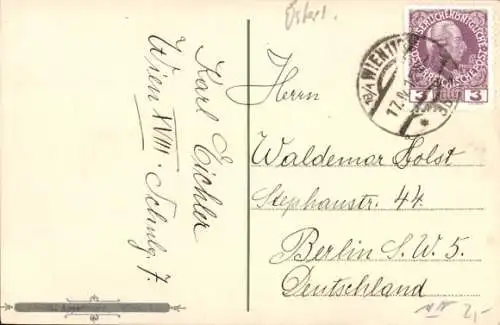 Österr.
Karl Eichler
Wien XVIII.
KAISERLICHE KÖNIGLICHE
ÖSTERREICHISCHE POST
3 3
WIEN 110
17.
Herrn
Waldemar Holst
Stephanstr. 44
Berlin S. W. 5.
Deutschland
2,-